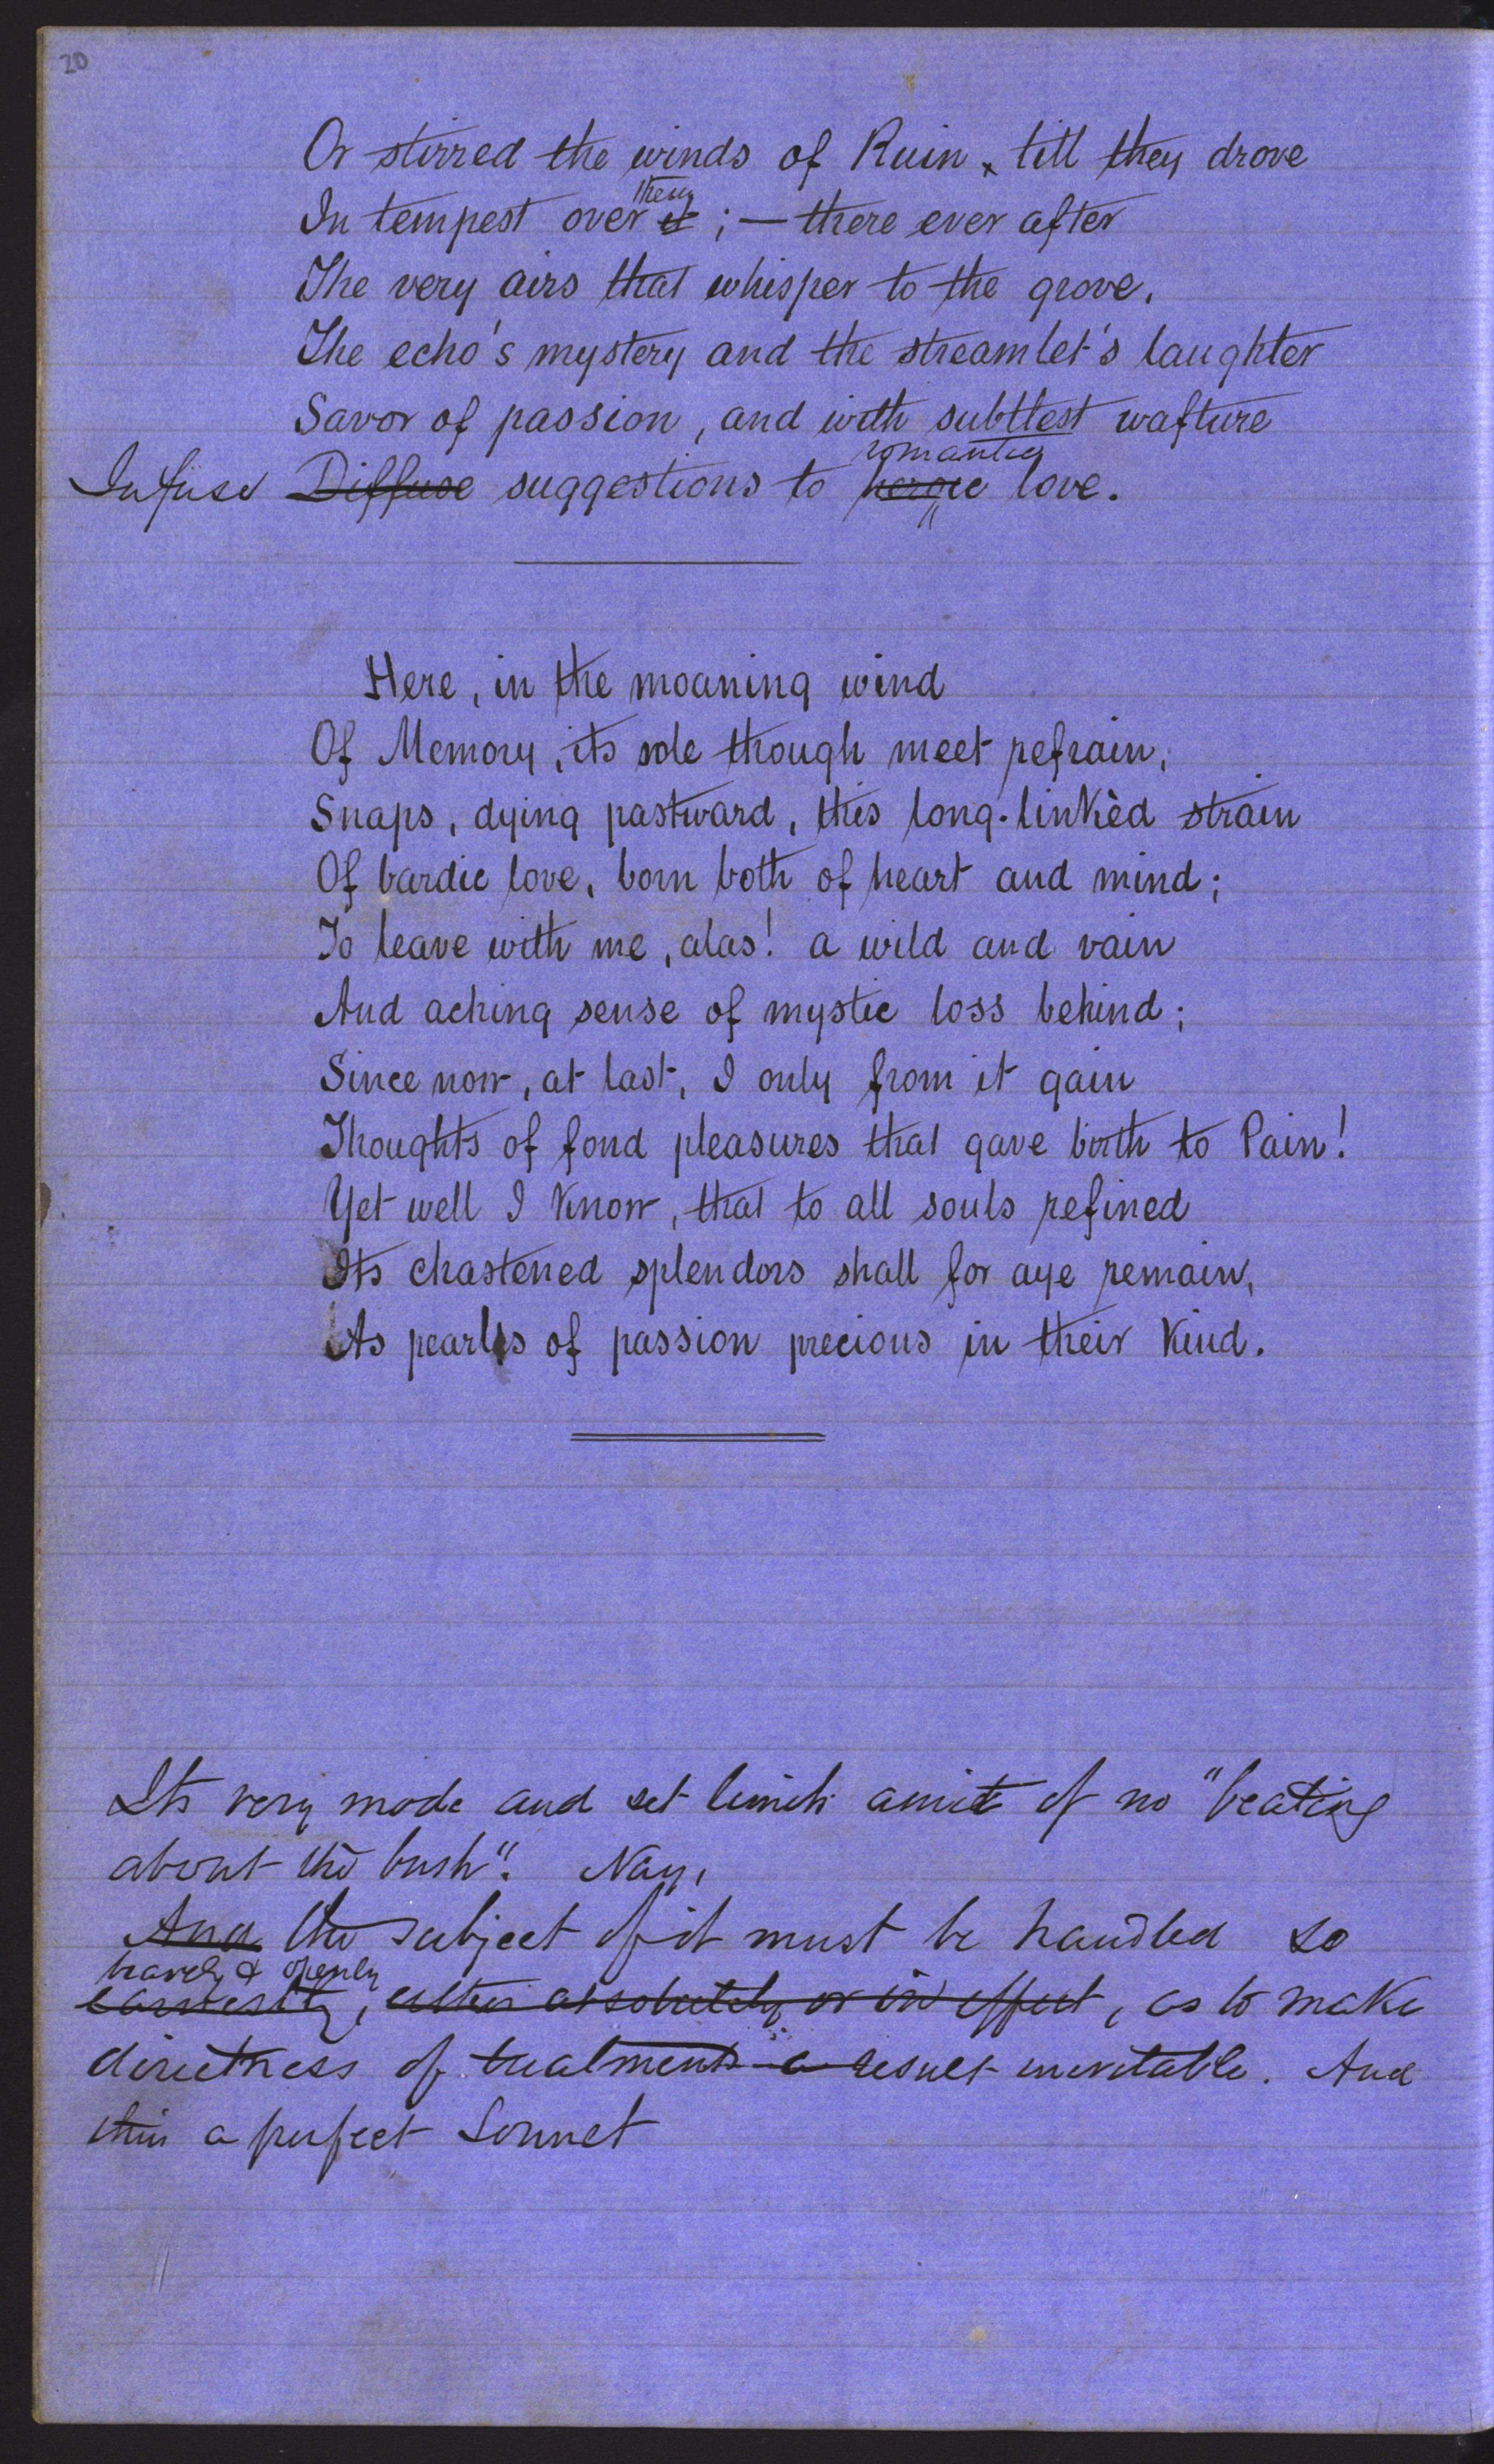 20
Or stirred the winds of Ruin, till they drove
them
In tempest over it; — there ever after
The very airs that whisper to the grove,
The echo's mystery and the streamlet's laughter
Savor of passion, and with subtlest wafture
romantic
Infuse Diffuse suggestions to heroic love.
Here, in the moaning wind
Of Memory, its sole though meet refrain,
Snaps, dying pastward, this long-linkèd strain
Of bardic love, born both of heart and mind;
To leave with me, alas! a wild and vain
And aching sense of mystic loss behind;
Since now, at last, I only from it gain
Thoughts of fond pleasures that gave birth to Pain!
Yet well I know, that to all souls refined
Its chastened splendors shall for aye remain,
As pearls of passion precious in their kind.
Its very mode and set limits admit of no "beating
about the bush". Nay,
And the subject of it must be handled so
bravely & openly
earnestly, either absolutely or in effect, as to make
directness of treatment a result inevitable. And
this a perfect Sonnet